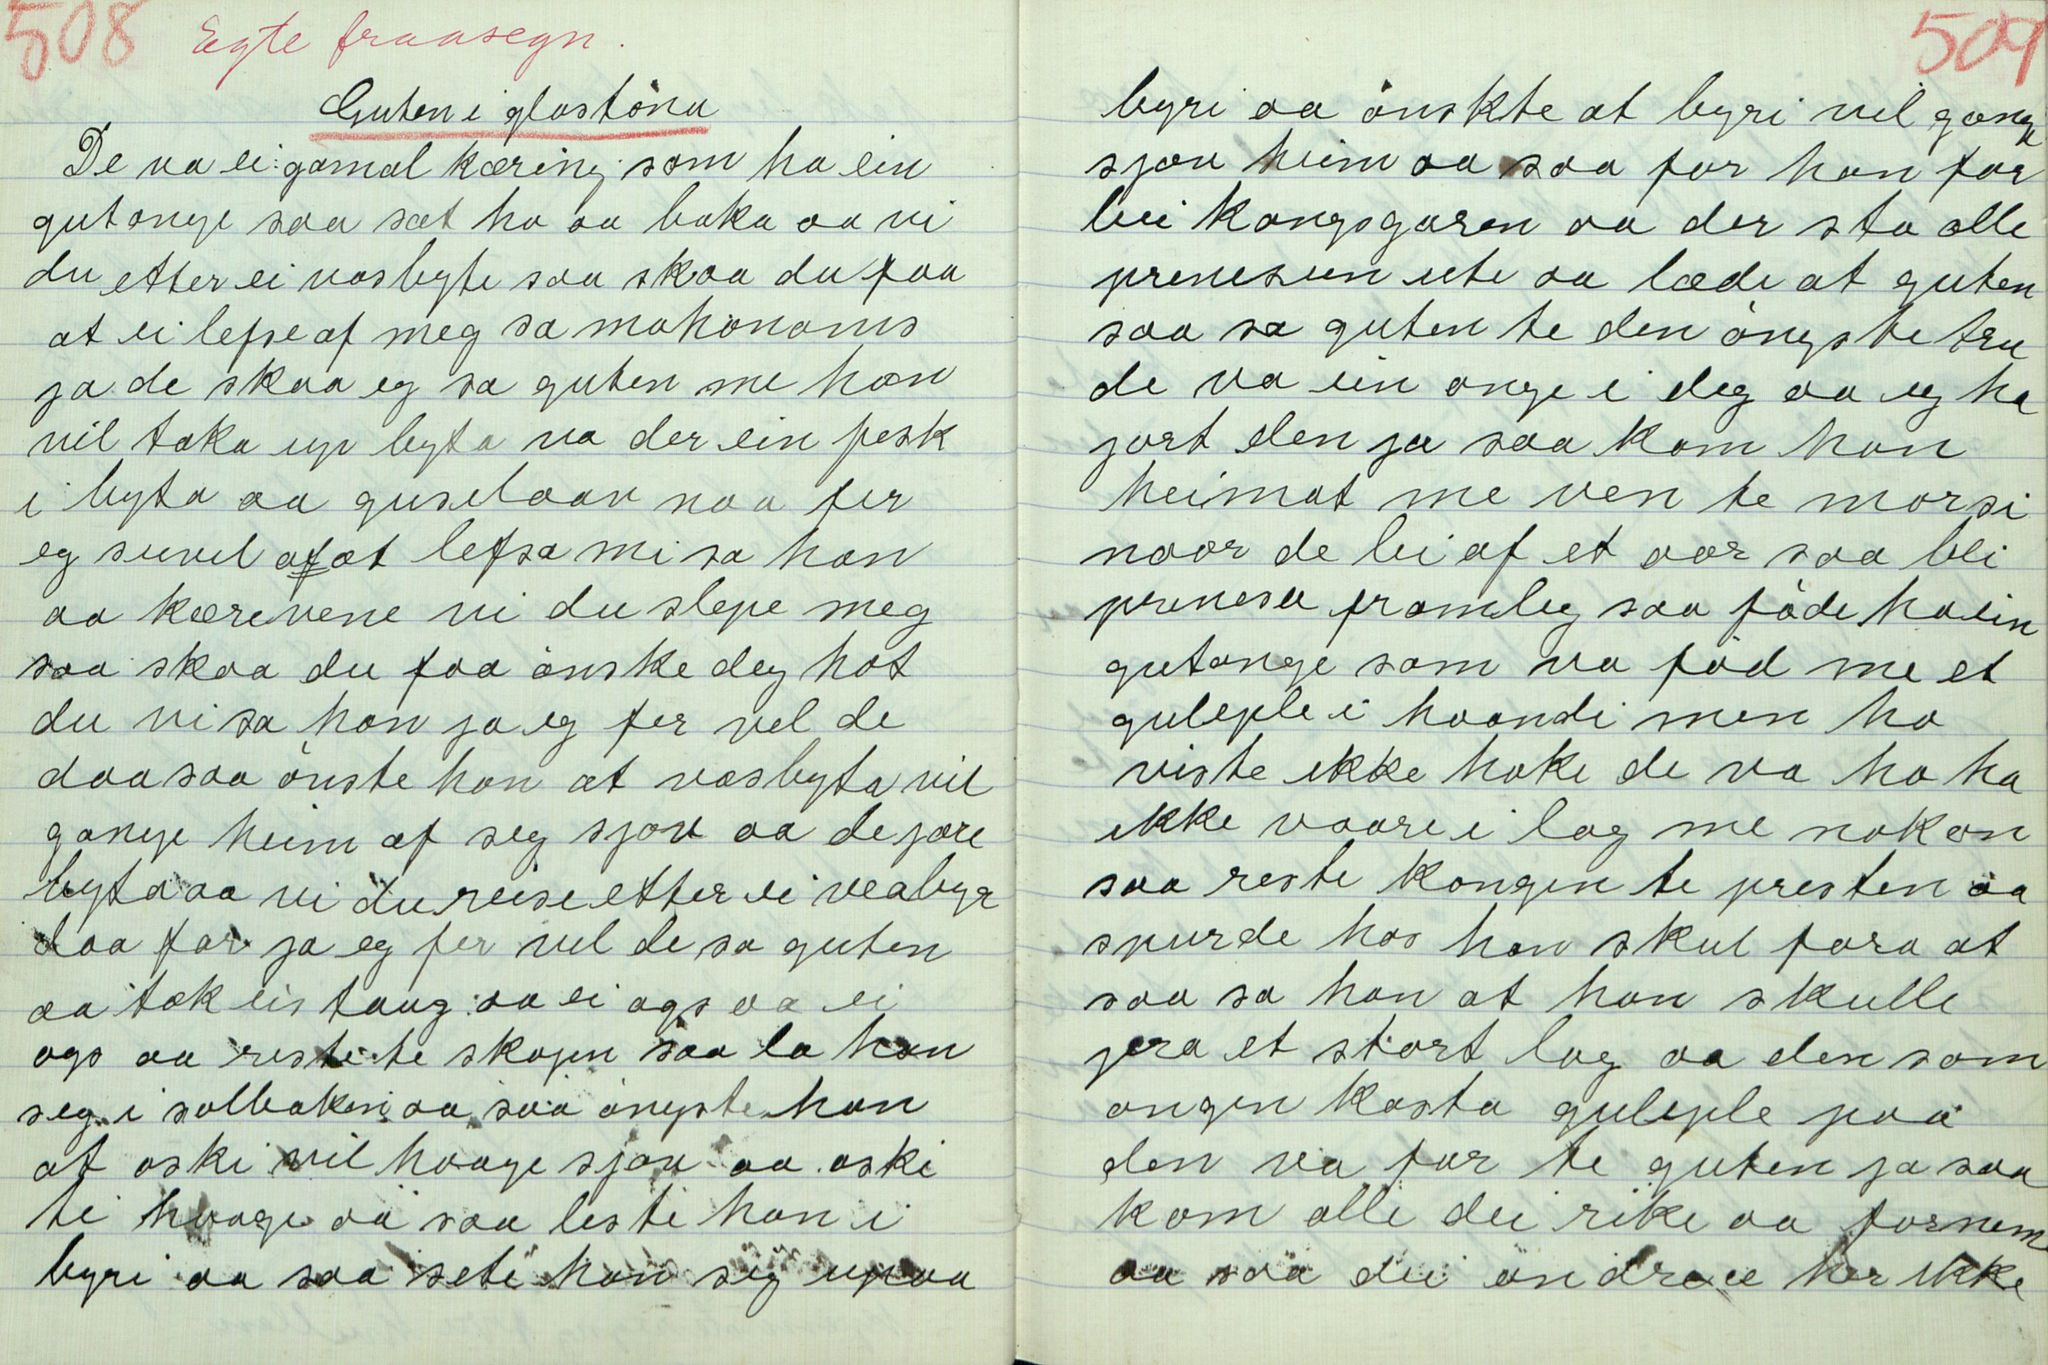 508
Egte fraasegn.
Guten i glastöna
De va ei gamal kæring som ha ein
gutonge saa sæt ho aa baka aa vi
du etter ei vasbyte saa skaa du faa
at ei lefse af meg sa mahonoms
ja de skaa eg sa guten me han
vil taka up byta va der ein fesk
i byta aa guselaav naa fer
eg suvel afat lefsa mi sa han
aa kærevene vi du slepe meg
saa skaa du faa önske deg hot
du vi sa han ja eg fer vel de
daa saa önste han at vasbyta vil
gange heim af seg sjøv aa de jøre
byta aa vi du reise etter ei veabyr
daa far ja eg fer vel de sa guten
aa tok eis taug aa ei ags aa ei
ogs aa reste te skojen saa la han
seg i solbaken aa saa öngste han
at oski vil hooge sjøv aa oski
te hooge aa saa leste han i
byri aa saa sete han seg upaa
509
byri aa önskte at byri vil gange
sjøv heim aa saa for han for
bei kongsgaren aa der sto alle
prenesun ute aa lædi at guten
saa sa guten te den öngste tru
de va ein onge i deg aa eg ha
jort den ja saa kom han
heimat me ven te morsi
naar de lei af et aar saa blei
prenesa framleg saa föde ho ein
gutonge som va föd me et
guleple i haandi men ho
viste ikke hoke de va ho ha
ikke vaare i lag me nokon
saa reste kongen te presten aa
spurde hos han skul fara at
saa sa han at han skulle
jera et stort lag aa den som
ongen kasta guleple paa
den va far te guten ja saa
kom alle dei rike aa forneme
aa saa dei andre er her ikke